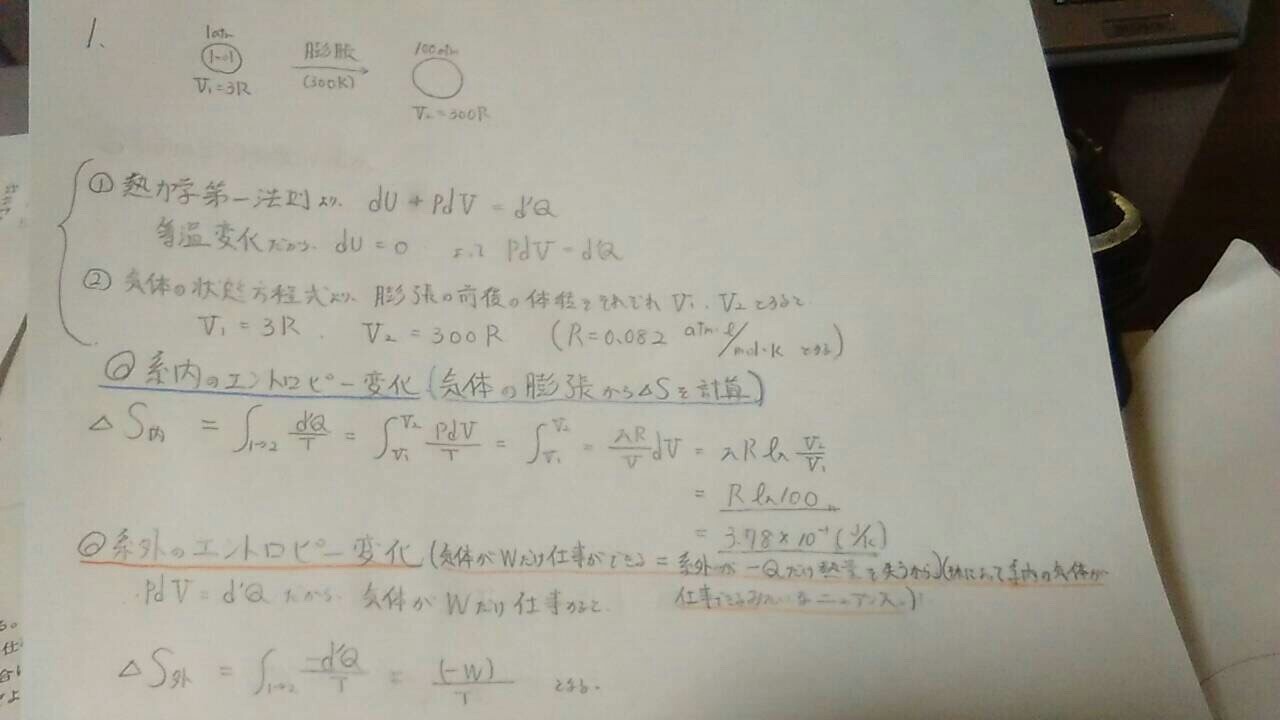 1.
1atm 膨張 100atm
1mol (300K)
V₁=3R V₂=300R
① 熱力学第一法則より、dU + PdV = d'Q
等温変化だから、dU = 0 よって PdV = d'Q
② 気体の状態方程式より、膨張の前後の体積をそれぞれ V₁、V₂ とすると
V₁ = 3R、 V₂ = 300R (R=0.082 atm·ℓ/mol·K とする)
◎ 系内のエントロピー変化 (気体の膨張からΔSを計算)
ΔS内 = ∫₁→₂ d'Q/T = ∫V₁V₂ PdV/T = ∫V₁V₂ = nR/V dV = nR ln V₂/V₁
= R ln100
= 3.78×10⁻¹ (J/K)
◎ 系外のエントロピー変化 (気体がWだけ仕事ができる = 系外が −Qだけ熱量を失うから) によって系内の気体が
仕事できるみたいなニュアンス。)
PdV = d'Q だから、気体が Wだけ仕事すると、
ΔS外 = ∫₁→₂ −d'Q/T = (−W)/T となる。